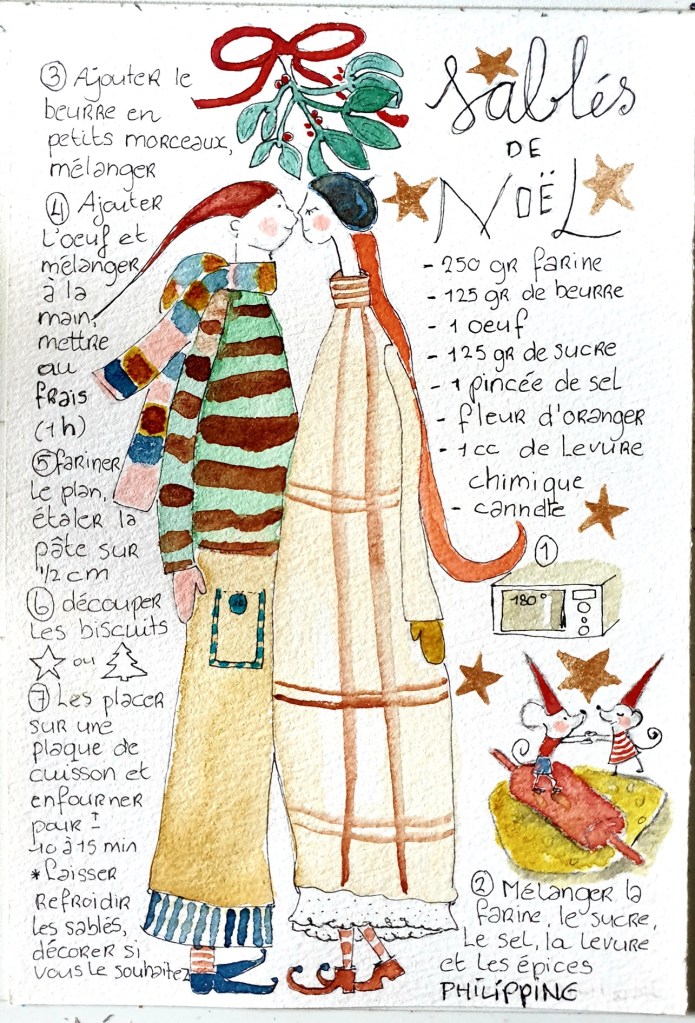 Sablés
DE
NOËL
- 250 gr farine
- 125 gr de beurre
- 1 oeuf
- 125 gr de sucre
- 1 pincée de sel
- fleur d'oranger
- 1 cc de levure
chimique
- cannelle
1
180°
2 Mélanger la
farine, le sucre,
le sel, la levure
et les épices
PHILIPPINE
3 Ajouter le
beurre en
petits morceaux,
mélanger
4 Ajouter
l'oeuf et
mélanger
à la
main,
mettre
au
frais
(1h)
5 fariner
le plan,
étaler la
pâte sur
1/2 cm
6 découper
les biscuits
ou
7 Les placer
sur une
plaque de
cuisson et
enfourner
pour
10 à 15 min
* Laisser
refroidir
les sablés,
décorer si
vous le souhaitez